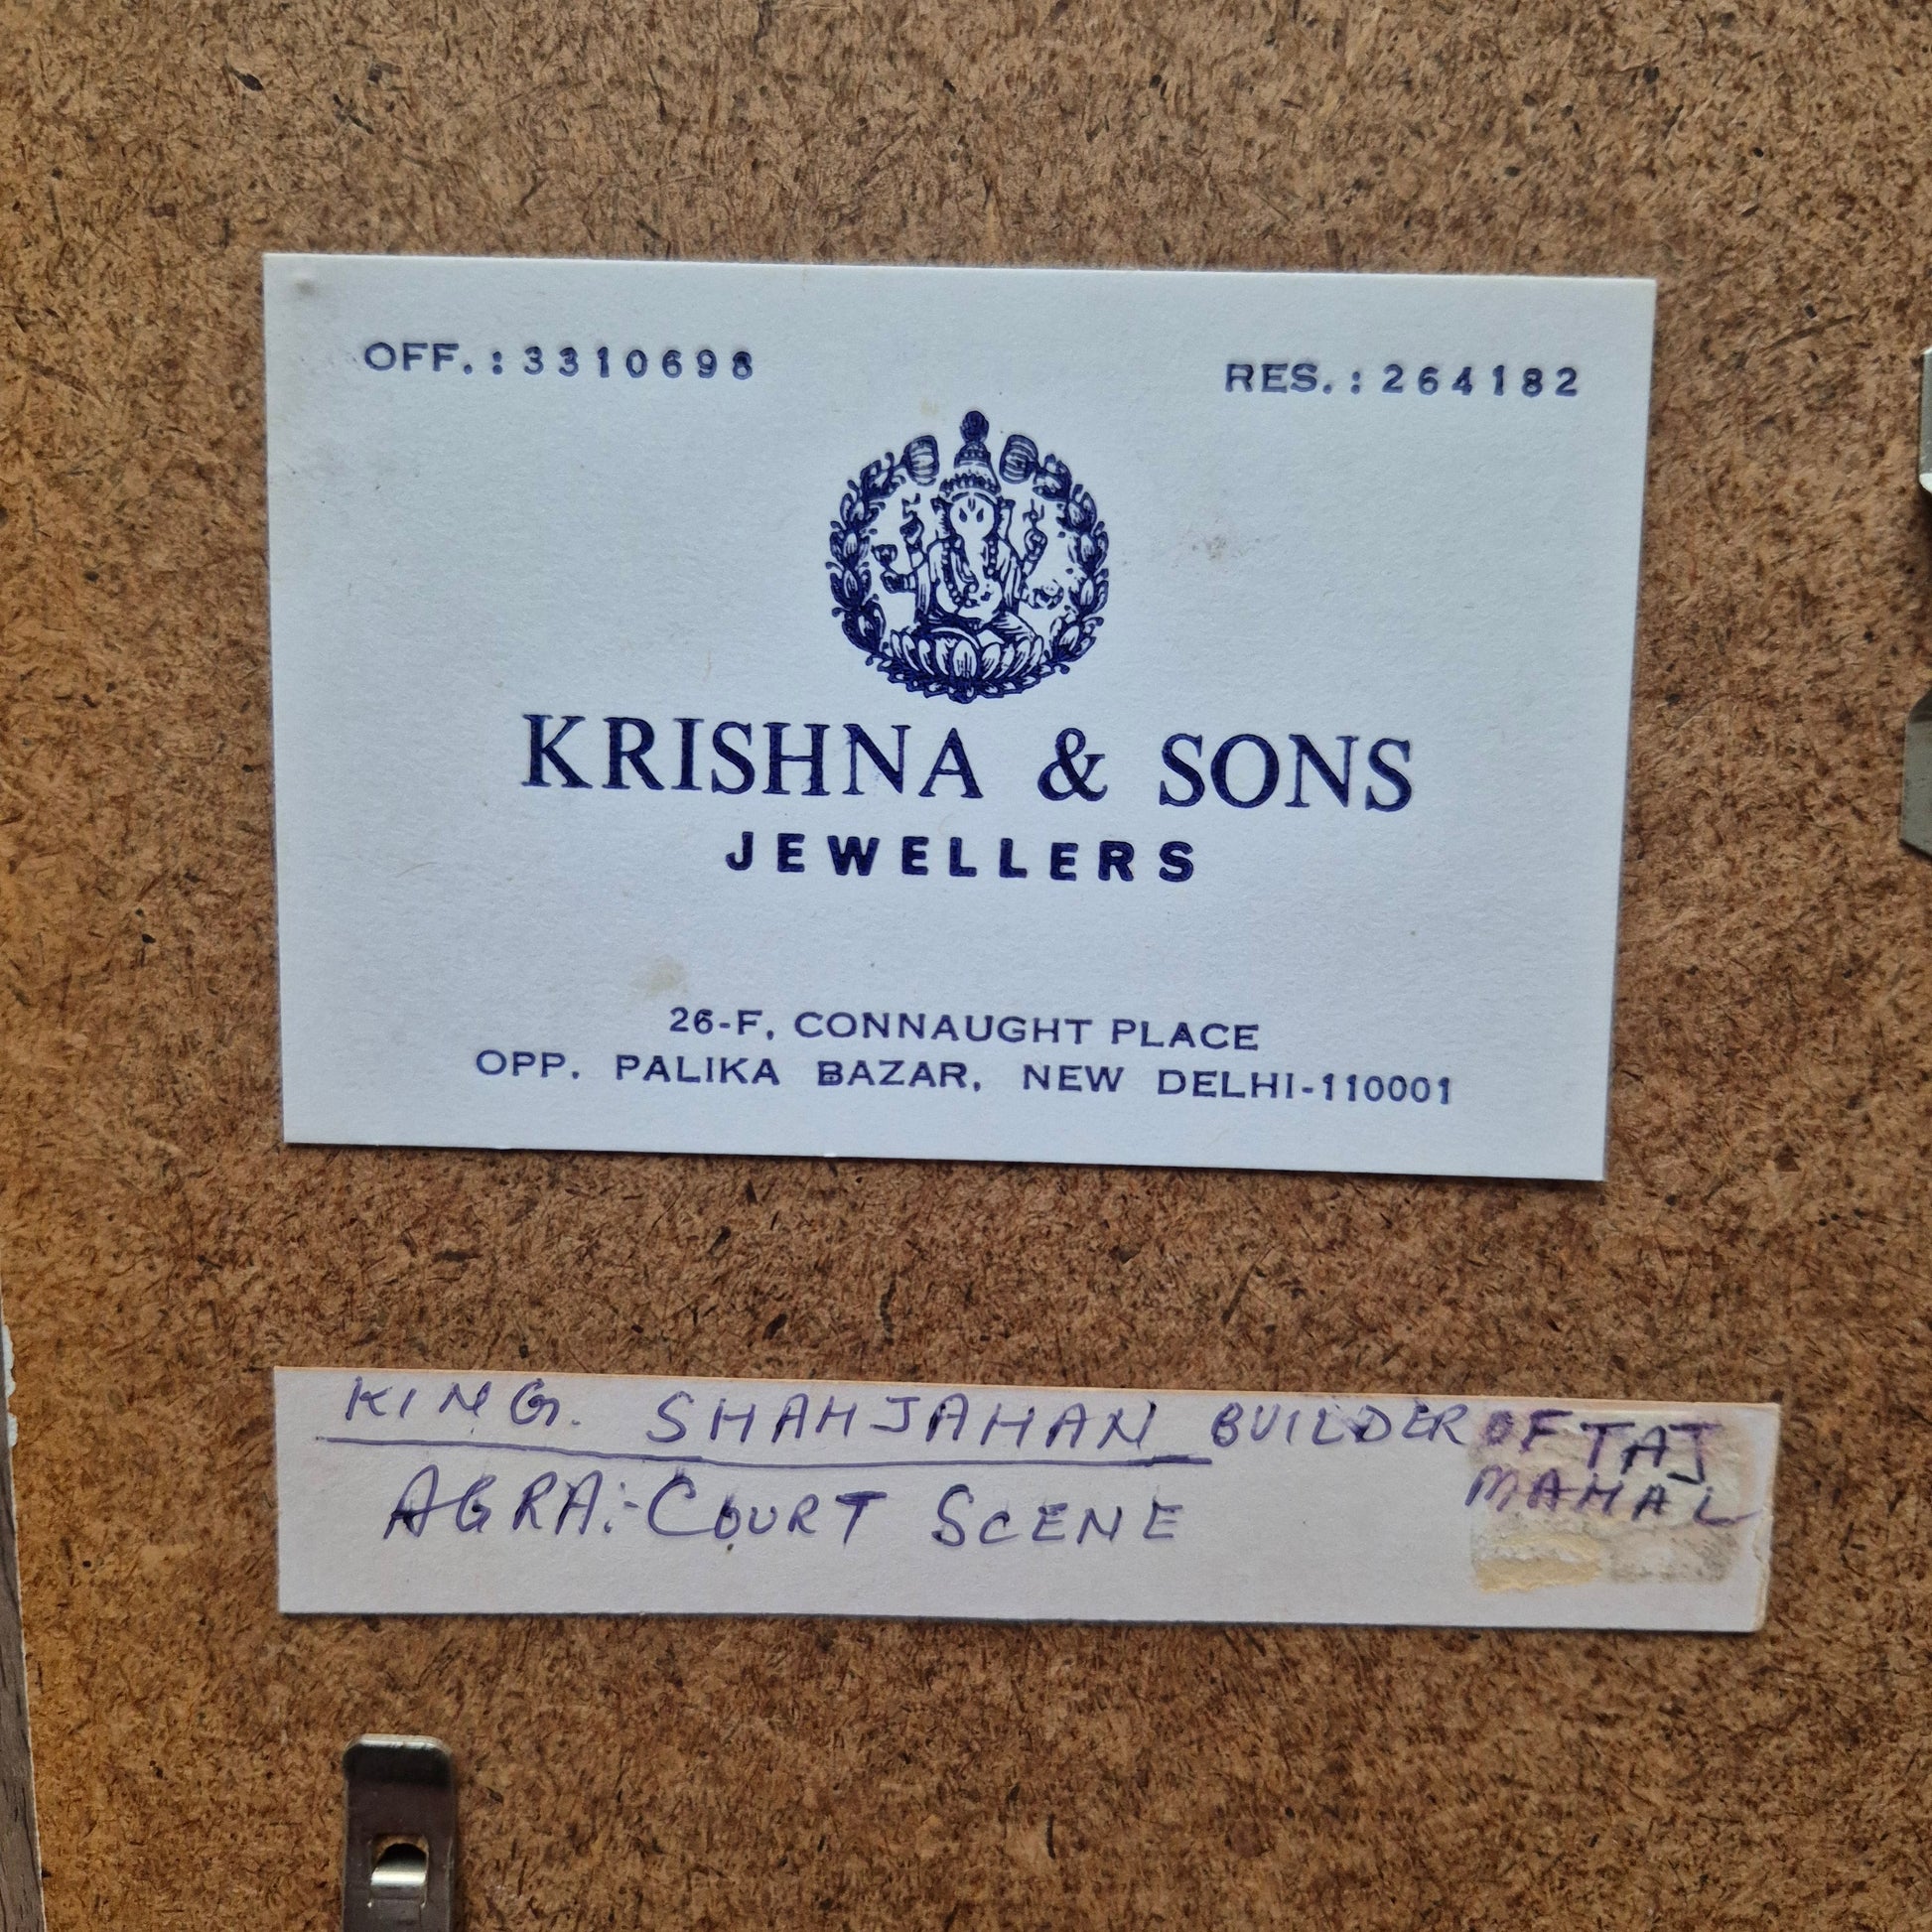 OFF.: 3310698
RES.: 264182
KRISHNA & SONS
JEWELLERS
26-F, CONNAUGHT PLACE
OPP. PALIKA BAZAR, NEW DELHI-110001
KING. SHAHJAHAN BUILDER OF TAJ
MAHAL
AGRA:- COURT SCENE